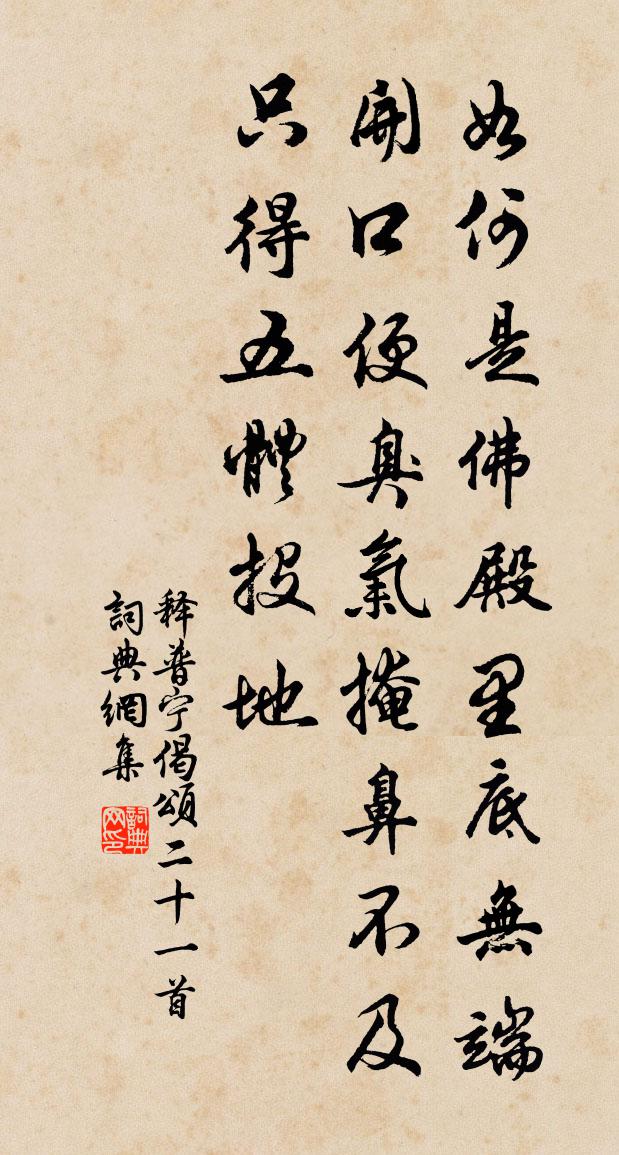 如何是佛殿里底無端
開口便臭氣掩鼻不及
只得五體投地
释普宁偈頌二十一首
詞典網集
詞典网印